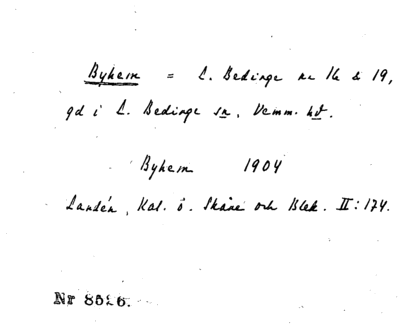 Byhem = L. Bedinge nr 16 & 19,
gd i L. Bedinge sn, Vemm. hd.
Byhem 1904
Landén, Kal. ö. Skåne och Blek. II:174.
Nr 8526.